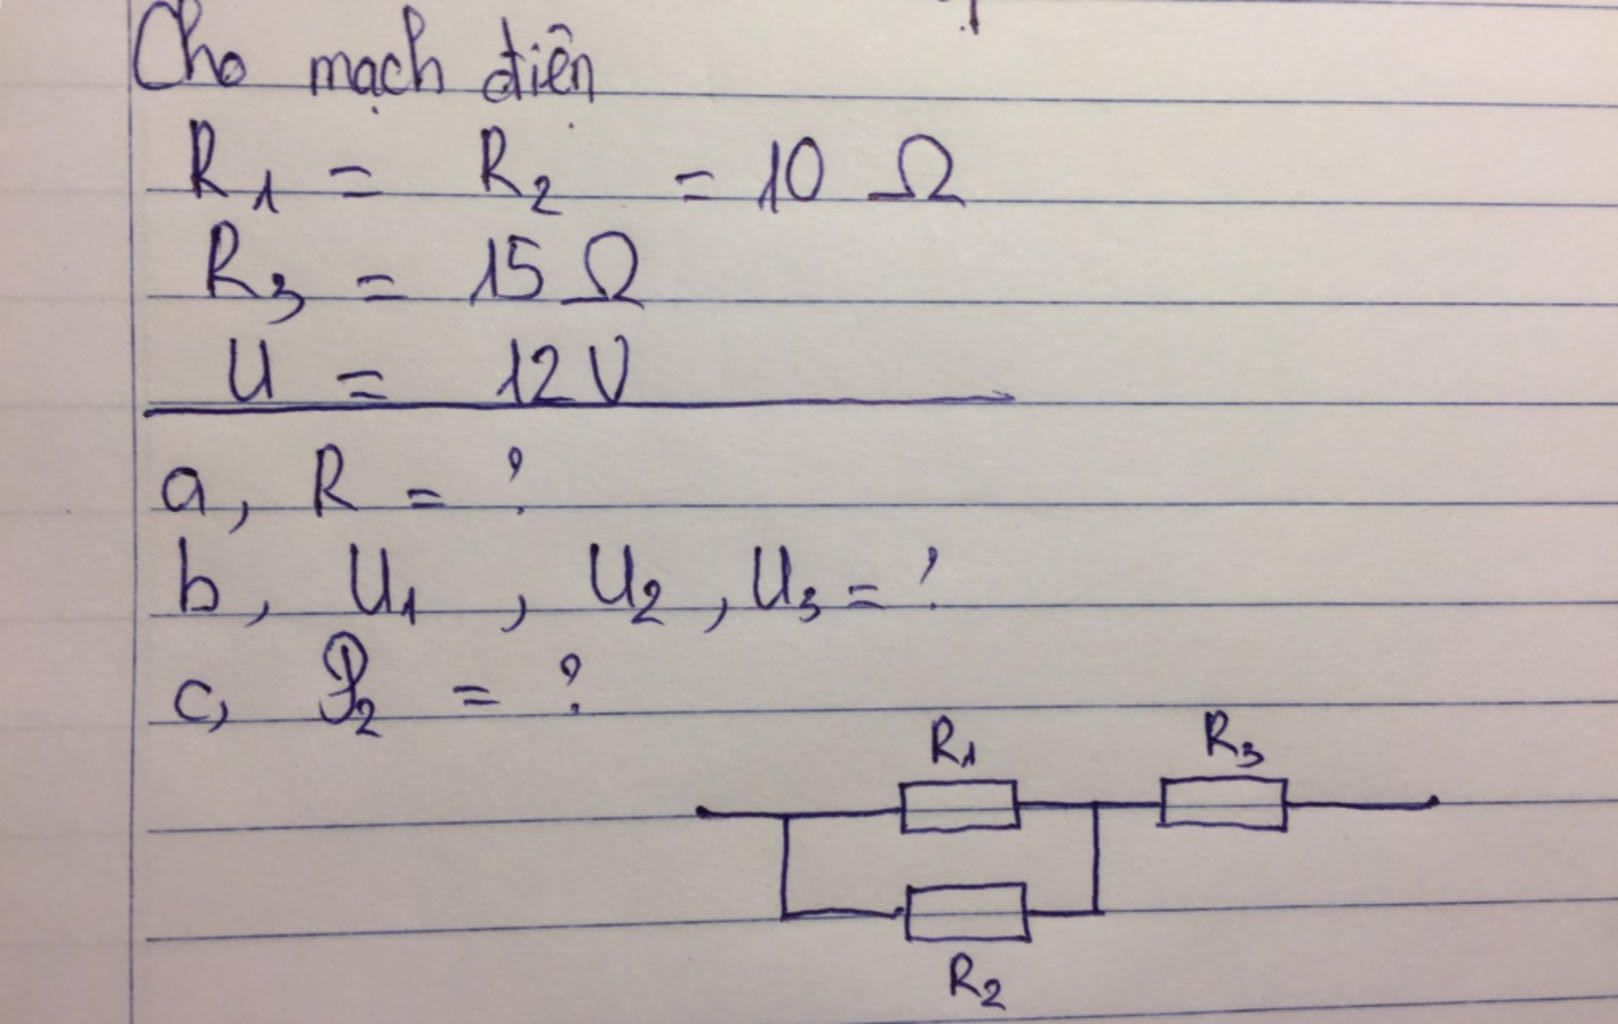 Cho mạch điện
R₁ = R₂ = 10 Ω
R₃ = 15 Ω
U = 12V
a, R = ?
b, U₁ , U₂ , U₃ = ?
c, P₂ = ?
R₁ R₃
R₂